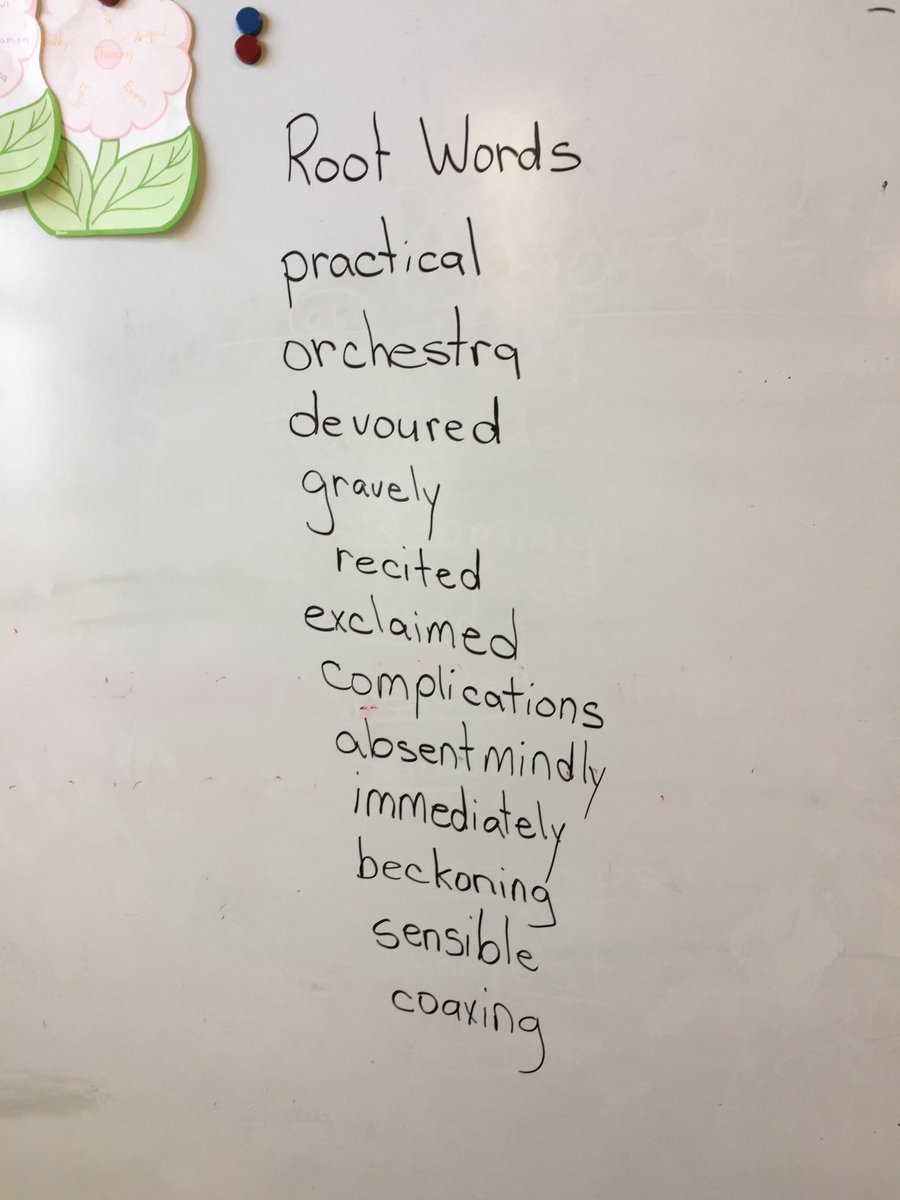 Abigail
Emily
Emma
Root Words
practical
orchestra
devoured
gravely
recited
exclaimed
complications
absent mindly
immediately
beckoning
sensible
coaxing